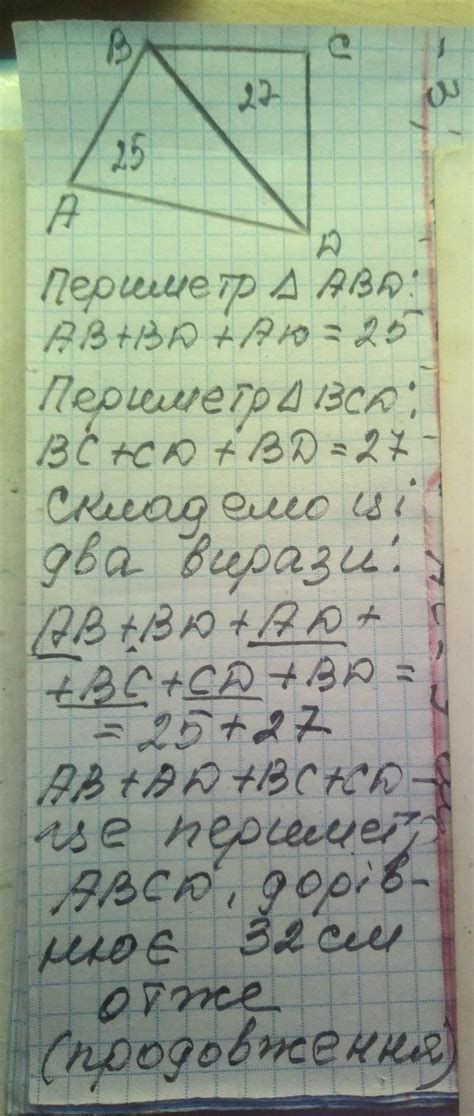 B C
27
25
A
D
Периметр Δ ABD:
AB+BD+AD=25
Периметр Δ BCD:
BC+CD+BD=27
Складемо ці
два вирази:
AB+BD+AD+
+BC+CD+BD=
=25+27
AB+AD+BC+CD-
це периметр
ABCD, дорів-
нює 32см
отже
(продовження)